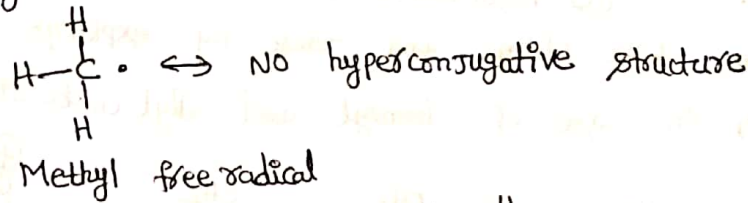 H
H—C• ⟷ NO hyperconjugative structure
H
Methyl free radical